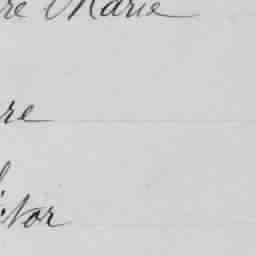 re Marie
re
ctor